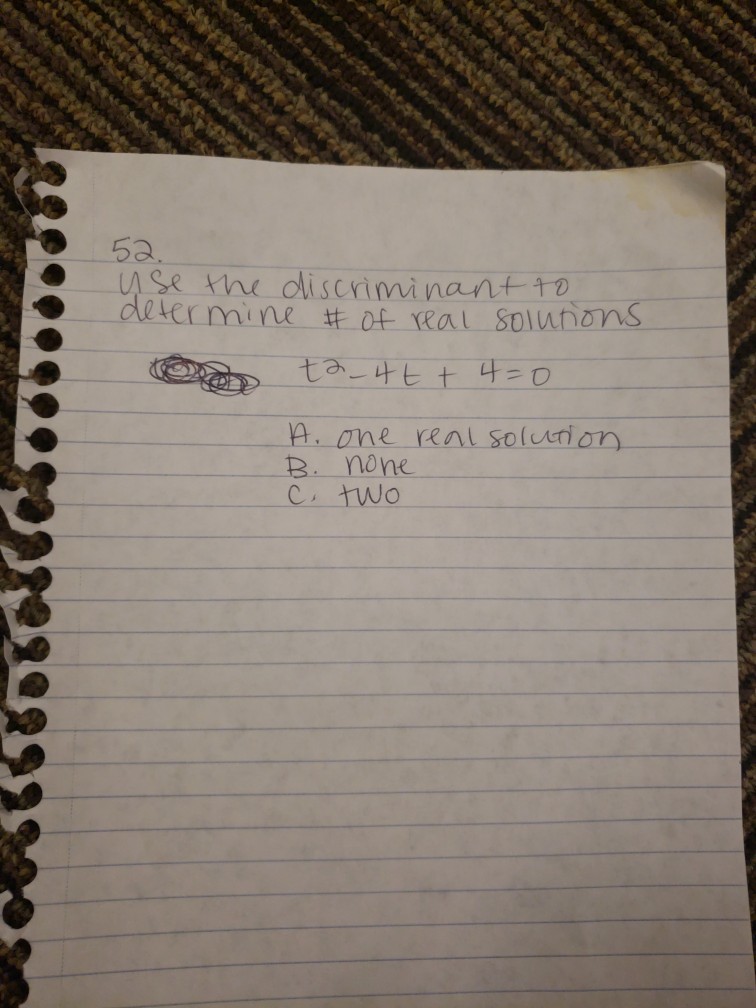 52.
use the discriminant to
determine # of real solutions
t2-4t + 4=0
A. one real solution
B. none
C. two